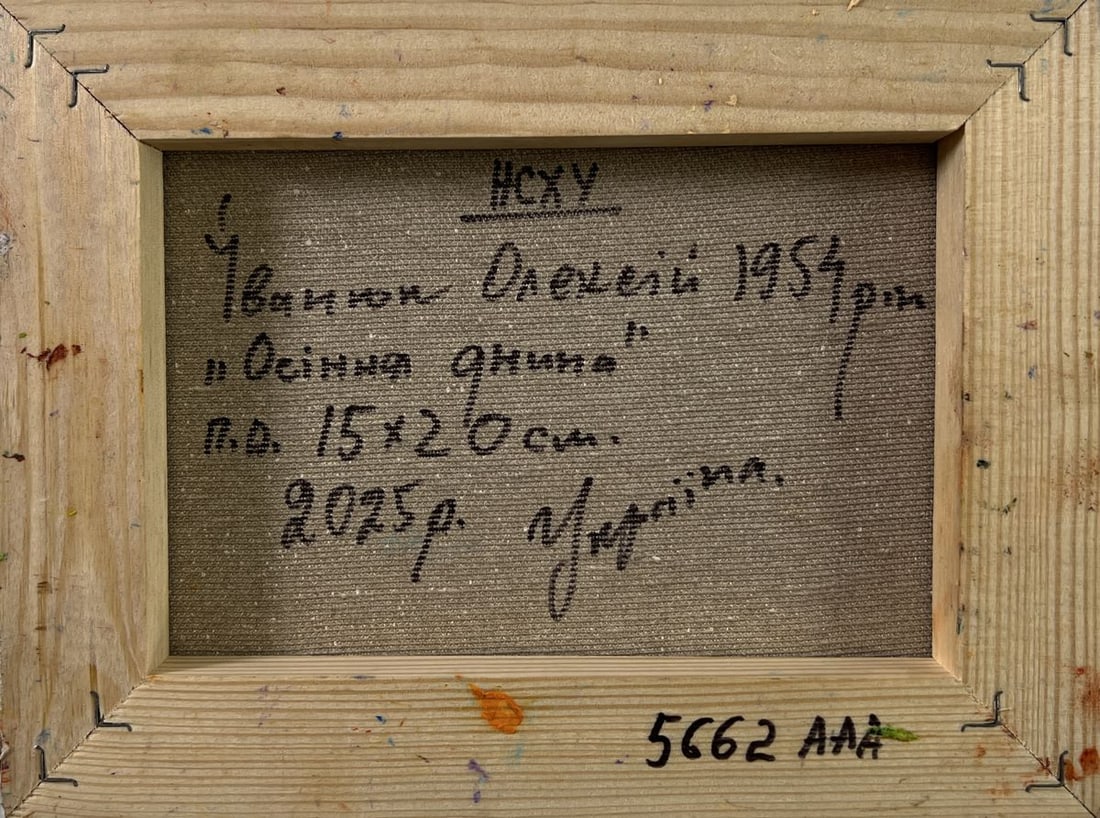 НСХУ
Іванюк Олексій 1954 рік
„Осіння днина"
п.о. 15×20 см.
2025р. Україна.
5662 ААА